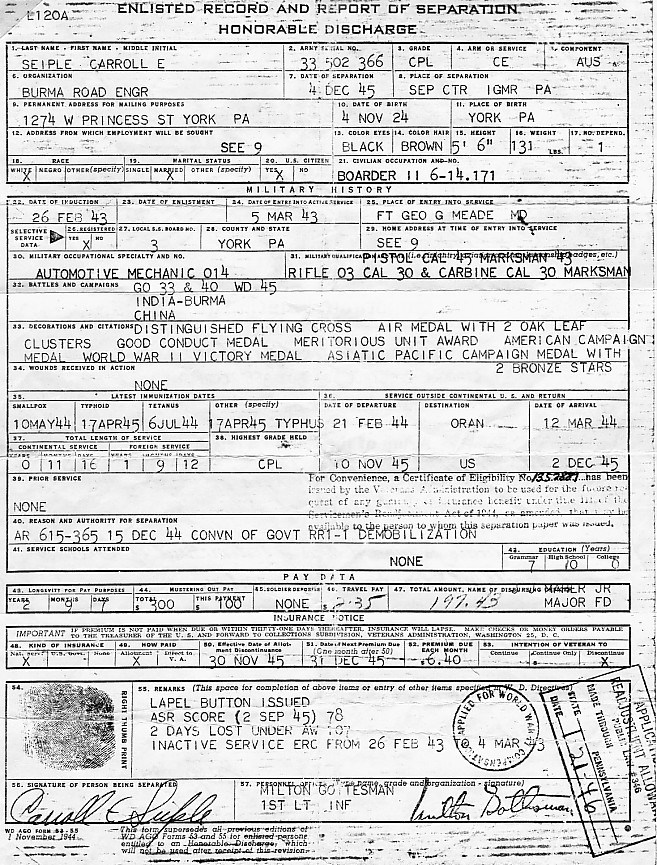 L120A
ENLISTED RECORD AND REPORT OF SEPARATION
HONORABLE DISCHARGE
1. LAST NAME - FIRST NAME - MIDDLE INITIAL 2. ARMY SERIAL NO. 3. GRADE 4. ARM OR SERVICE 5. COMPONENT
SEIPLE CARROLL E 33 502 366 CPL CE AUS
6. ORGANIZATION 7. DATE OF SEPARATION 8. PLACE OF SEPARATION
BURMA ROAD ENGR 4 DEC 45 SEP CTR IGMR PA
9. PERMANENT ADDRESS FOR MAILING PURPOSES 10. DATE OF BIRTH 11. PLACE OF BIRTH
1274 W PRINCESS ST YORK PA 4 NOV 24 YORK PA
12. ADDRESS FROM WHICH EMPLOYMENT WILL BE SOUGHT 13. COLOR EYES 14. COLOR HAIR 15. HEIGHT 16. WEIGHT 17. NO. DEPEND.
SEE 9 BLACK BROWN 5' 6" 131 LBS. 1
18. RACE 19. MARITAL STATUS 20. U.S. CITIZEN 21. CIVILIAN OCCUPATION AND NO.
WHITE NEGRO OTHER (specify) SINGLE MARRIED OTHER (specify) YES NO
X X X BOARDER II 6-14.171
MILITARY HISTORY
22. DATE OF INDUCTION 23. DATE OF ENLISTMENT 24. DATE OF ENTRY INTO ACTIVE SERVICE 25. PLACE OF ENTRY INTO SERVICE
26 FEB 43 5 MAR 43 FT GEO G MEADE MD
SELECTIVE SERVICE DATA 26. REGISTERED YES NO 27. LOCAL S.S. BOARD NO. 28. COUNTY AND STATE 29. HOME ADDRESS AT TIME OF ENTRY INTO SERVICE
X 3 YORK PA SEE 9
30. MILITARY OCCUPATIONAL SPECIALTY AND NO. 31. MILITARY QUALIFICATION PISTOL CAL 45 MARKSMAN 43
AUTOMOTIVE MECHANIC 014 RIFLE 03 CAL 30 & CARBINE CAL 30 MARKSMAN
32. BATTLES AND CAMPAIGNS GO 33 & 40 WD 45
INDIA-BURMA
CHINA
33. DECORATIONS AND CITATIONS DISTINGUISHED FLYING CROSS AIR MEDAL WITH 2 OAK LEAF
CLUSTERS GOOD CONDUCT MEDAL MERITORIOUS UNIT AWARD AMERICAN CAMPAIGN
MEDAL WORLD WAR II VICTORY MEDAL ASIATIC PACIFIC CAMPAIGN MEDAL WITH
34. WOUNDS RECEIVED IN ACTION 2 BRONZE STARS
NONE
35. LATEST IMMUNIZATION DATES 36. SERVICE OUTSIDE CONTINENTAL U.S. AND RETURN
SMALLPOX TYPHOID TETANUS OTHER (specify) DATE OF DEPARTURE DESTINATION DATE OF ARRIVAL
10MAY44 17APR45 6JUL44 17APR45 TYPHUS 21 FEB 44 ORAN 12 MAR 44
37. TOTAL LENGTH OF SERVICE 38. HIGHEST GRADE HELD
CONTINENTAL SERVICE FOREIGN SERVICE
0 11 16 1 9 12 CPL 10 NOV 45 US 2 DEC 45
39. PRIOR SERVICE For Convenience, a Certificate of Eligibility No. has been
issued by the Veterans Administration to be used for the future
NONE
available to the person to whom this separation paper was issued.
40. REASON AND AUTHORITY FOR SEPARATION
AR 615-365 15 DEC 44 CONVN OF GOVT RR1-1 DEMOBILIZATION
41. SERVICE SCHOOLS ATTENDED 42. EDUCATION (Years)
NONE Grammar High School College
7 10 0
PAY DATA
43. LONGEVITY FOR PAY PURPOSES 44. MUSTERING OUT PAY 45. SOLDIER DEPOSITS 46. TRAVEL PAY 47. TOTAL AMOUNT, NAME OF DISBURSING
YEARS MONTHS DAYS TOTAL THIS PAYMENT
2 9 7 $ 300 $ 100 NONE $ 2.35 197.45 MAHER JR
MAJOR FD
INSURANCE NOTICE
IMPORTANT IF PREMIUM IS NOT PAID WHEN DUE OR WITHIN THIRTY-ONE DAYS THEREAFTER, INSURANCE WILL LAPSE. MAKE CHECKS OR MONEY ORDERS PAYABLE
TO THE TREASURER OF THE U. S. AND FORWARD TO COLLECTIONS SUBDIVISION, VETERANS ADMINISTRATION, WASHINGTON 25, D. C.
48. KIND OF INSURANCE 49. HOW PAID 50. Effective Date of Allotment Discontinuance 51. Date of Next Premium Due (One month after 50) 52. PREMIUM DUE EACH MONTH 53. INTENTION OF VETERAN TO
Nat. Serv. U.S. Govt. None Allotment Direct to V. A. Continue Continue Only Discontinue
X X 30 NOV 45 31 DEC 45 $ 6.40 X
54. RIGHT THUMB PRINT 55. REMARKS (This space for completion of above items or entry of other items specified in W. D. Directives)
LAPEL BUTTON ISSUED
ASR SCORE (2 SEP 45) 78
2 DAYS LOST UNDER AW 107
INACTIVE SERVICE ERC FROM 26 FEB 43 TO 4 MAR 43
APPLIED FOR WORLD WAR COMPENSATION
APPLICATION
READJUSTMENT ALLOWANCE
MADE THROUGH
PUBLIC LAW #346
STATE PENNSYLVANIA
DATE 1-21-46
56. SIGNATURE OF PERSON BEING SEPARATED 57. PERSONNEL OFFICER (Type name, grade and organization - signature)
Carroll E Seiple MILTON GOTTESMAN
1ST LT INF Milton Gottesman
WD AGO FORM 53-55
1 November 1944
This form supersedes all previous editions of
WD AGO Forms 53 and 55 for enlisted persons
entitled to an Honorable Discharge, which
will not be used after receipt of this revision.